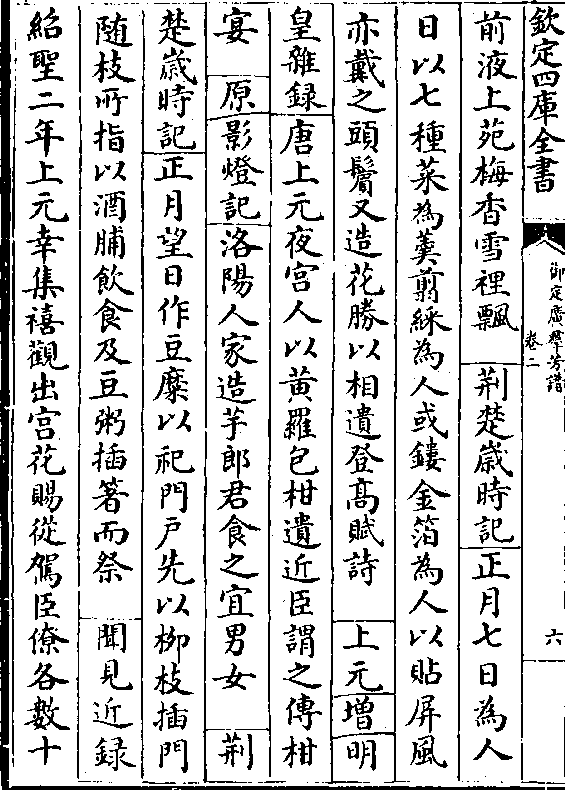 欽定四庫全書
御定廣羣芳譜
卷二
六
前液上苑梅香雪裡飄 荆楚歳時記正月七日為人
日以七種菜為羮剪綵為人或鏤金箔為人以貼屏風
亦戴之頭鬢又造花勝以相遺登髙賦詩 上元增明
皇雜録唐上元夜宫人以黄羅包柑遺近臣謂之傳柑
宴 原影燈記洛陽人家造芋郎君食之宜男女 荆
楚嵗時記正月望日作豆糜以祀門户先以栁枝插門
随枝所指以酒脯飲食及豆粥插箸而祭 聞見近録
紹聖二年上元幸集禧觀出宫花賜從駕臣僚各數十